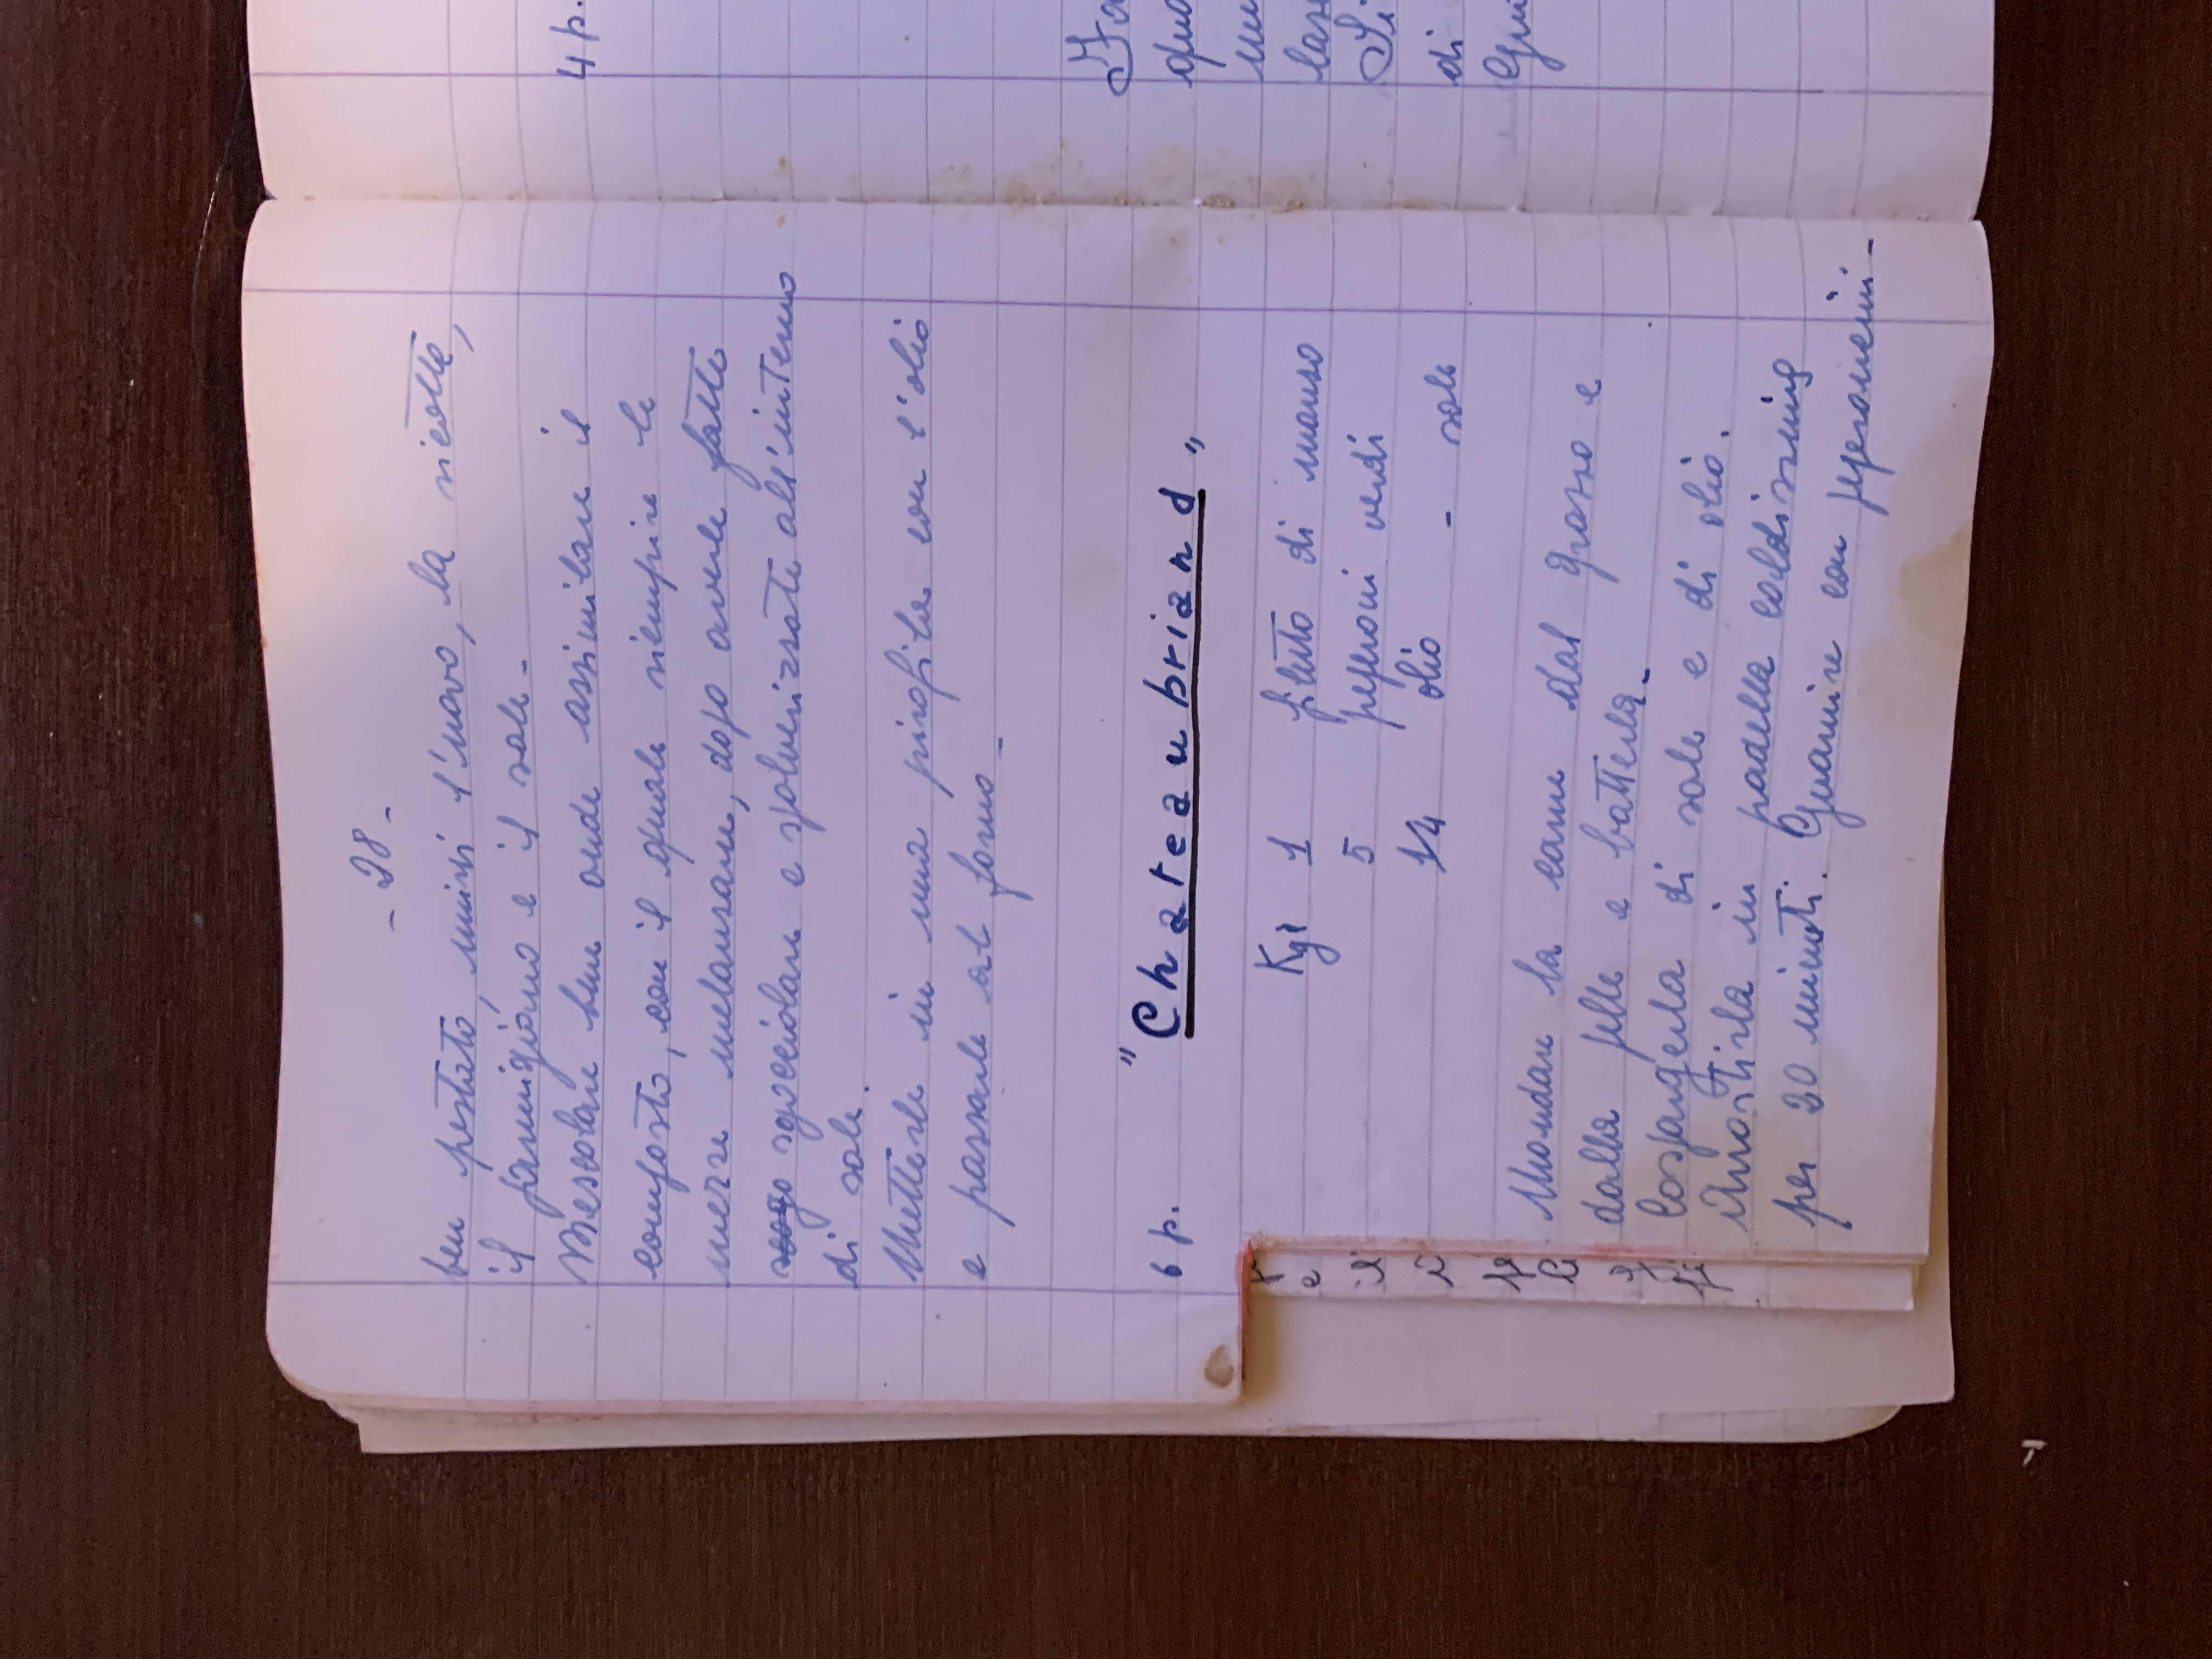 - 28 -
ben pestato, unirsi l'uovo, la ricotta,
il parmigiano e il sale -
Mescolare bene onde assimilare il
composto, con il quale riempire le
mezze melanzane, dopo averle fatte
sgocciolare e spolverizzate all'interno
di sale.
Metterle in una pirofila con l'olio
e passarle al forno -
6 p. "Chateaubriand"
Kgr 1 filetto di manzo
5 peperoni verdi
1/4 olio - sale
Mondare la carne dal grasso e
dalla pelle e batterla -
Cospargerla di sale e di olio.
Arrostirla in padella caldissima
per 20 minuti. Guarnire con peperoncini -
e
il
4 p.
di